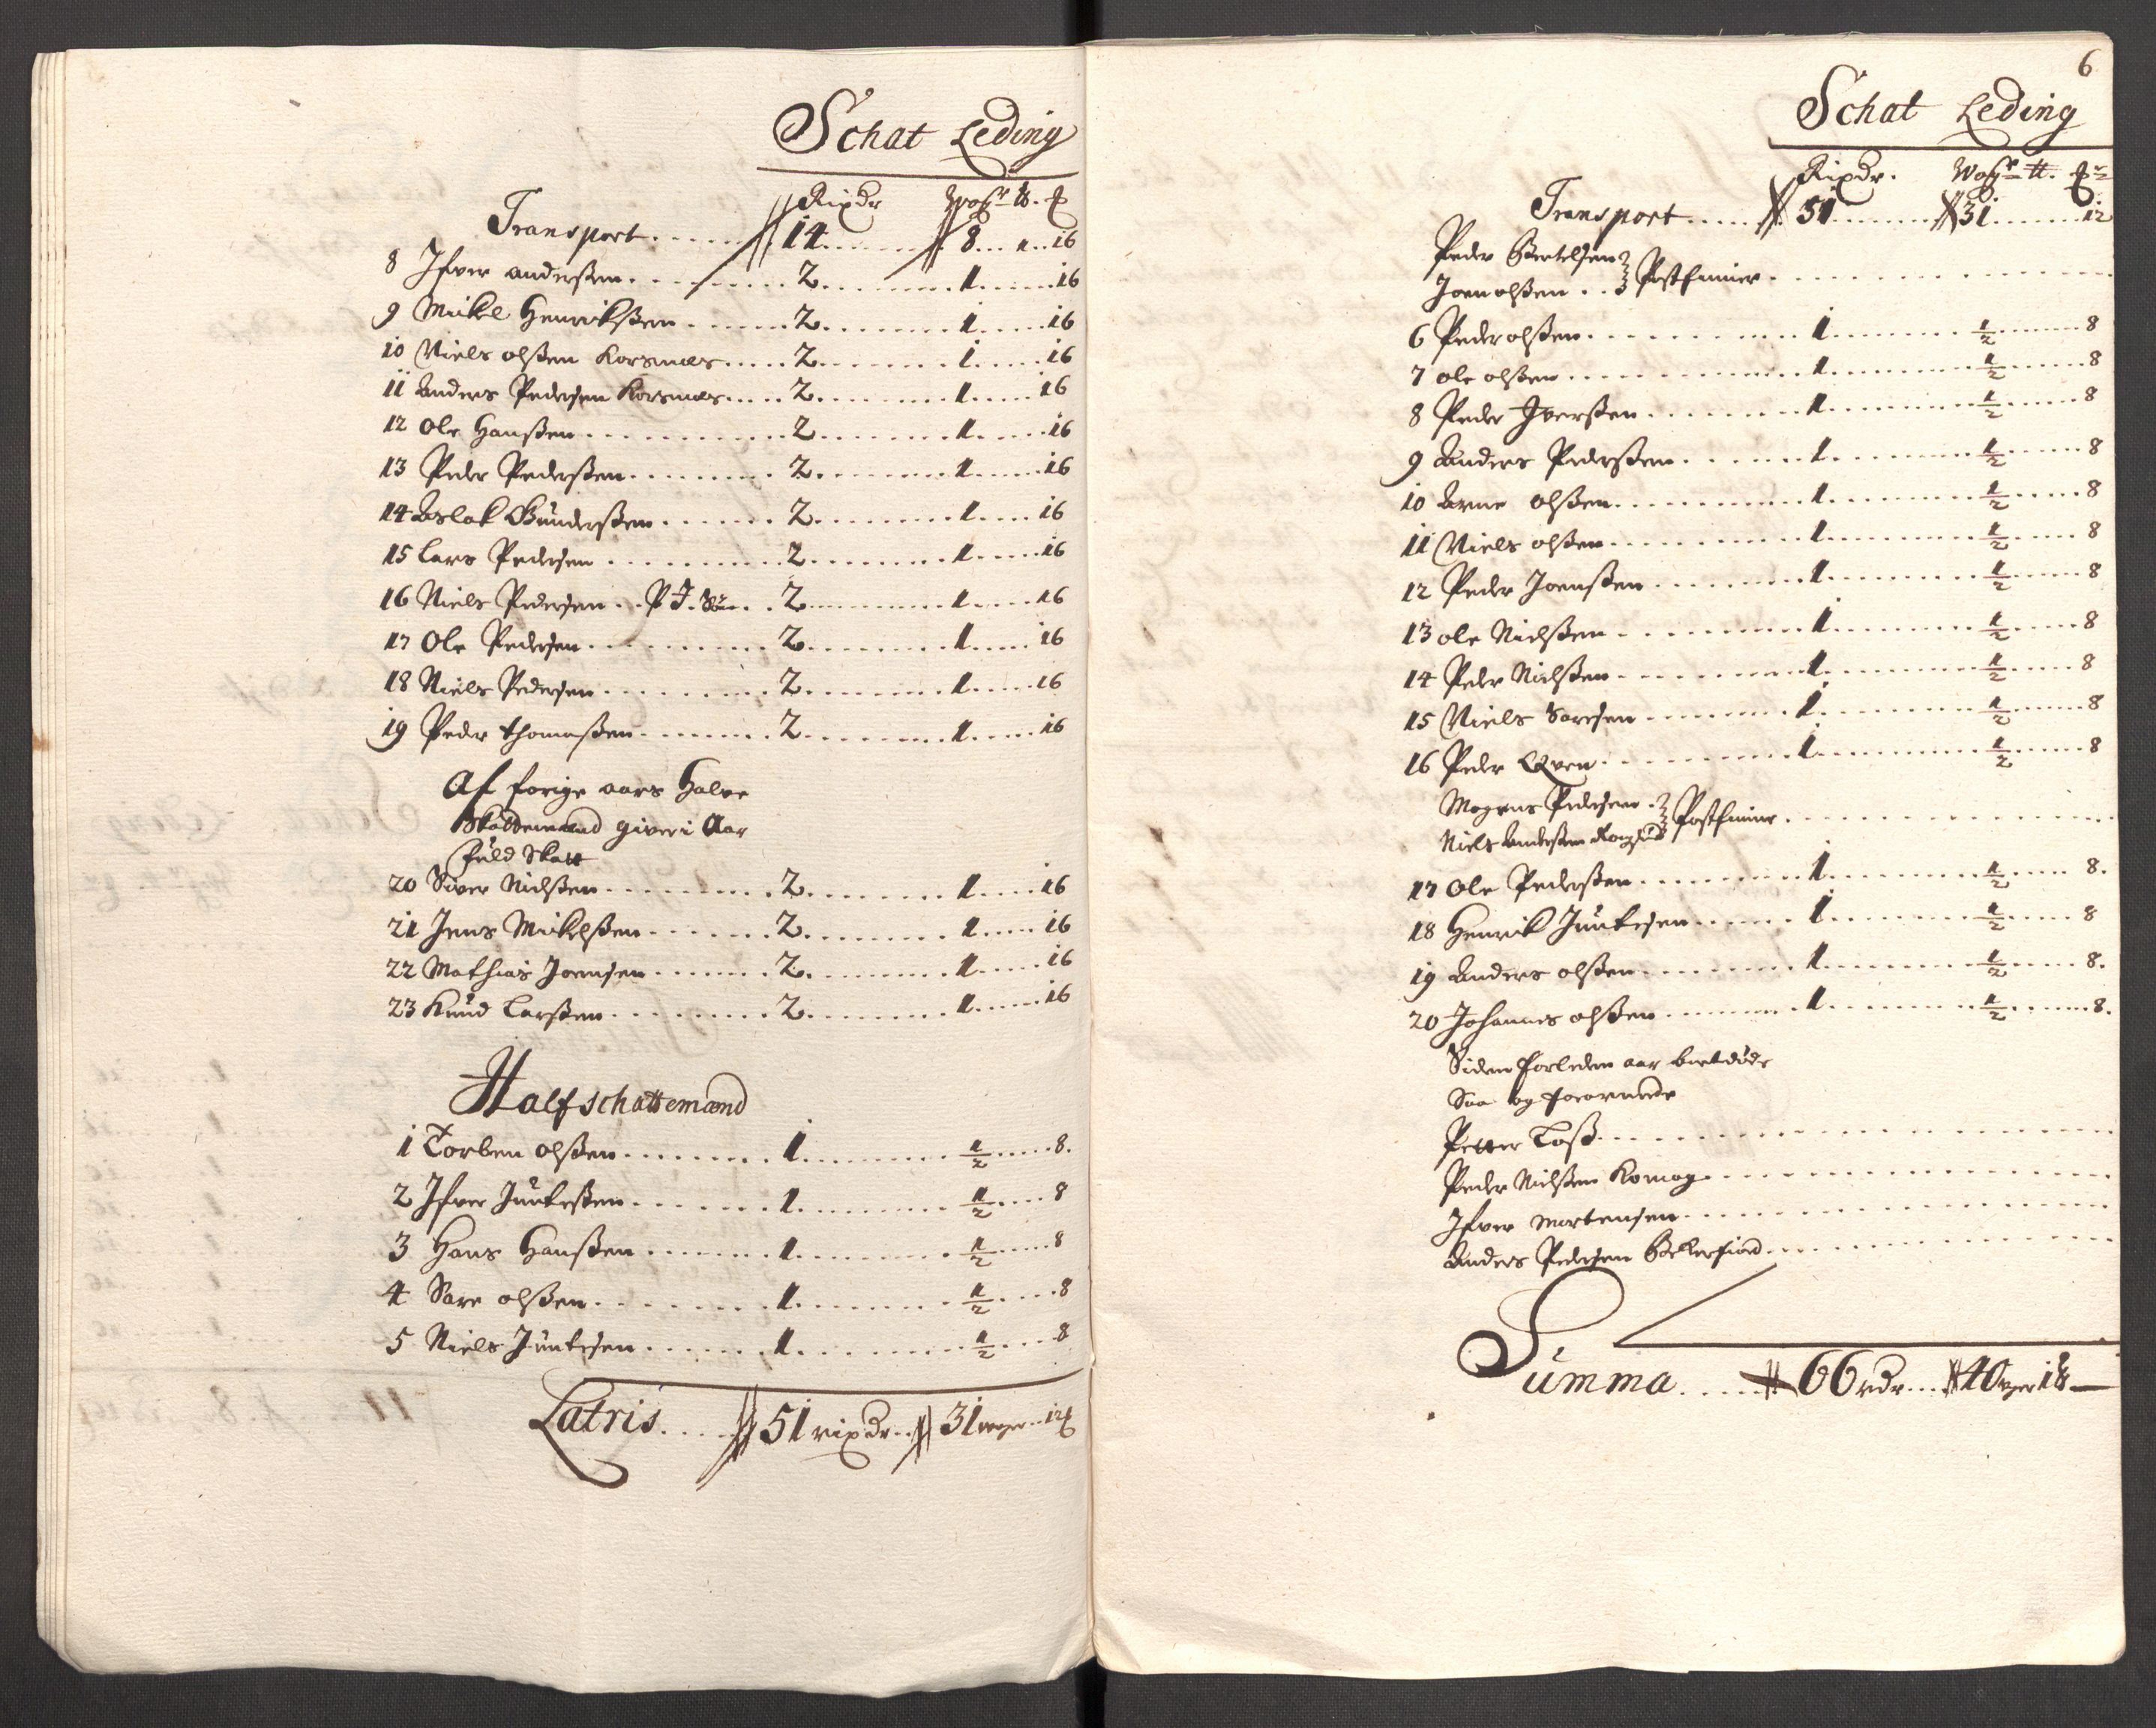 Schat Leding
Rixdr Wog ℔.
Transport 14 8 16
8 Ifver anderßen 2 1 16
9 Mickel Henrikßen 2 1 16
10 Niels olßen Korsnæs 2 1 16
11 Anders Pedersen Korsnæs 2 1 16
12 Ole Hanßen 2 1 16
13 Peder Pederßen 2 1 16
14 Aslak Gunderßen 2 1 16
15 Lars Pedersen 2 1 16
16 Niels Pedersen 2 1 16
17 Ole Pedersen 2 1 16
18 Niels Pedersen 2 1 16
19 Peder thomaßen 2 1 16
Af forige aars Halve
Skattemænd giver i Aar
fuld Skatt
20 Siver Nielßen 2 1 16
21 Jens Mickelßen 2 1 16
22 Mathias Joensen 2 1 16
23 Knud Larßen 2 1 16
Half schattemænd
1 Torben olßen 1 1/2 8.
2 Ifver Juntesßen 1 1/2 8
3 Hans Hanßen 1 1/2 8
4 Sare olßen 1 1/2 8
5 Niels Juntesen 1 1/2 8
Latris 51 rixdr 31 woger 12
6
Schat Leding
Rixdr. Wog ℔.
Transport 51 31 12
Peder Bertelsen
Joen olßen Postfinner
6 Peder olßen 1 1/2 8
7 ole olßen 1 1/2 8
8 Peder Iverßen 1 1/2 8
9 Anders Pederßen 1 1/2 8
10 Arne olßen 1 1/2 8
11 Niels olßen 1 1/2 8
12 Peder Joenßen 1 1/2 8
13 ole Nielßen 1 1/2 8
14 Peder Nielßen 1 1/2 8
15 Niels Saresen 1 1/2 8
16 Peder Qven 1 1/2 8
Mogens Pedersen Postfinner
Niels Anderßen
17 Ole Pederßen 1 1/2 8.
18 Henrik Juntesen 1 1/2 8
19 Anders olßen 1 1/2 8.
20 Johannes olßen 1 1/2 8.
Siden forleden aar bortdöde
Saa og foraarmede
Petter Loß
Peder Nielßen Komag
Ifver Mortensen
Anders Pedersen Bellefiord
Summa 66 rdr 40 woger 18